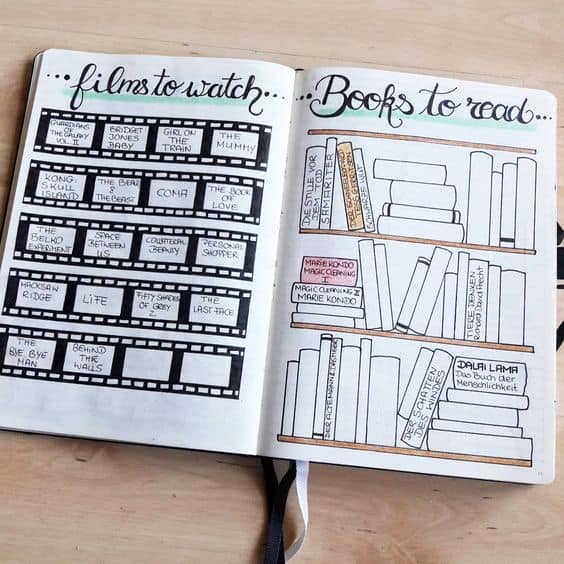 films to watch
GUARDIANS
OF THE
GALAXY
VOL. II
BRIDGET
JONES
BABY
GIRL ON
THE
TRAIN
THE
MUMMY
KONG-
SKULL
ISLAND
THE BEAR
& THE BEAST
COMA
THE BOOK
OF
LOVE
THE
BELKO
EXPERIMENT
SPACE
BETWEEN
US
COLLATERAL
BEAUTY
PERSONAL
SHOPPER
HACKSAW
RIDGE
LIFE
FIFTY SHADES
OF GREY
2
THE
LAST FACE
THE
BYE BYE
MAN
BEHIND
THE
WALLS
Books to read
DIE STILLE VOR
DEM TOD
SAMARITER
SCHWARZE
MARIE KONDO
MAGIC CLEANING
I
MAGIC CLEANING II
MARIE KONDO
TIERE DENKEN
Richard David Precht
DER ALTE MANN
DER SCHATTEN
DES WINDES
DALAI LAMA
Das Buch der
Menschlichkeit